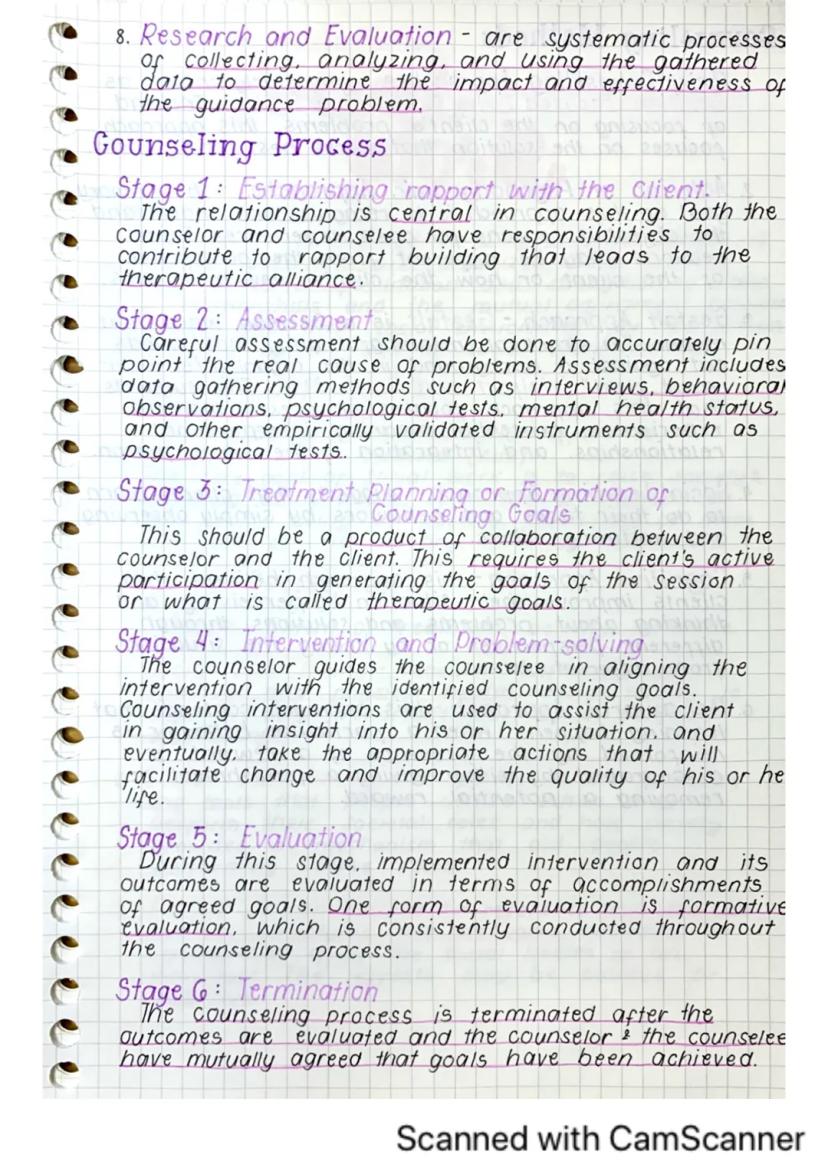 8. Research and Evaluation - are systematic processes
of collecting, analyzing, and using the gathered
data to determine the impact and effectiveness of
the guidance problem.
Counseling Process
Stage 1: Establishing rapport with the Client.
The relationship is central in counseling. Both the
counselor and counselee have responsibilities to
contribute to rapport building that leads to the
therapeutic alliance.
Stage 2: Assessment
Careful assessment should be done to accurately pin
point the real cause of problems. Assessment includes
data gathering methods such as interviews, behavioral
observations, psychological tests, mental health status,
and other empirically validated instruments such as
psychological tests.
Stage 3: Treatment Planning or Formation of
Counseling Goals
This should be a product of collaboration between the
counselor and the client. This requires the client's active
participation in generating the goals of the session
or what is called therapeutic goals.
Stage 4: Intervention and Problem-solving
The counselor guides the counselee in aligning the
intervention with the identified counseling goals.
Counseling interventions are used to assist the client
in gaining insight into his or her situation, and
eventually, take the appropriate actions that will
facilitate change and improve the quality of his or he
life.
Stage 5: Evaluation
During this stage, implemented intervention and its
outcomes are evaluated in terms of accomplishments
of agreed goals. One form of evaluation is formative
evaluation, which is consistently conducted throughout
the counseling process.
Stage 6: Termination
The counseling process is terminated after the
outcomes are evaluated and the counselor & the counselee
have mutually agreed that goals have been achieved.
Scanned with CamScanner